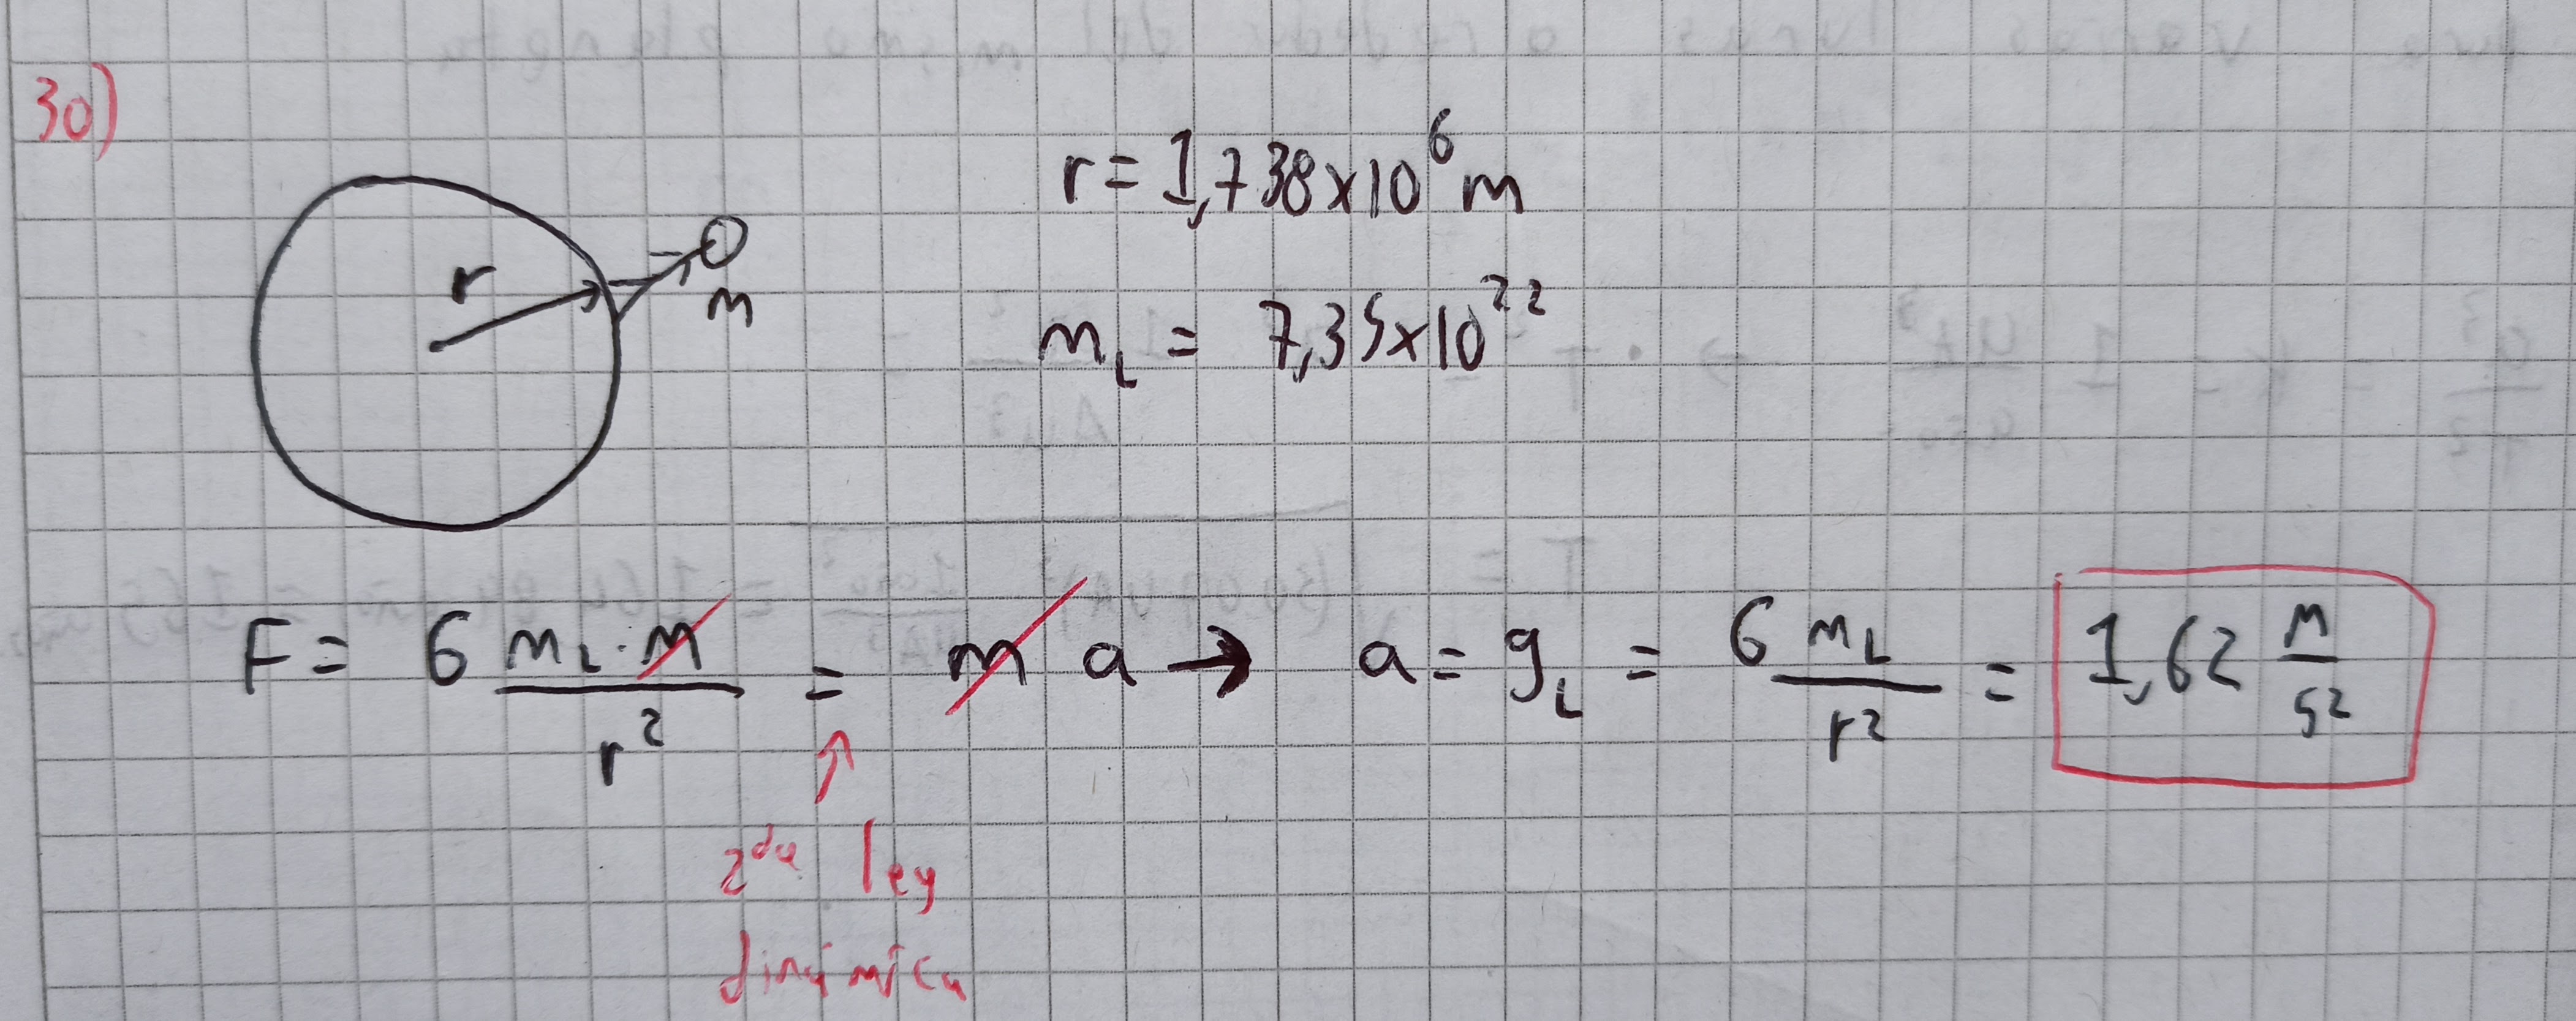 30)
r = 1,738x10⁶ m
r
m
m_L = 7,35x10²²
F = G m_L · m / r² = m a → a = g_L = G m_L / r² = 1,62 m/s²
↑
2da ley
dinámica